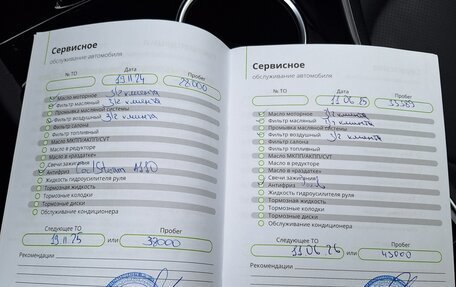 Сервисное
обслуживание автомобиля
№ ТО Дата Пробег
19.11.24 28000
Масло моторное з/ч клиента
Фильтр масляный з/ч клиента
Промывка масляной системы
Фильтр воздушный з/ч клиента
Фильтр салона
Фильтр топливный
Масло МКПП/АКПП/CVT
Масло в редукторе
Масло в «раздатке»
Свечи зажигания
Антифриз
Жидкость гидроусилителя руля
Тормозная жидкость
Тормозные колодки
Тормозные диски
Обслуживание кондиционера
Следующее ТО Пробег
19.11.25 или 38000
Рекомендации
Сервисное
обслуживание автомобиля
№ ТО Дата Пробег
11.06.25 35383
Масло моторное з/ч клиента
Фильтр масляный з/ч клиента
Промывка масляной системы
Фильтр воздушный з/ч клиента
Фильтр салона
Фильтр топливный
Масло МКПП/АКПП/CVT
Масло в редукторе
Масло в «раздатке»
Свечи зажигания
Антифриз
Жидкость гидроусилителя руля
Тормозная жидкость
Тормозные колодки
Тормозные диски
Обслуживание кондиционера
Следующее ТО Пробег
11.06.26 или 45000
Рекомендации